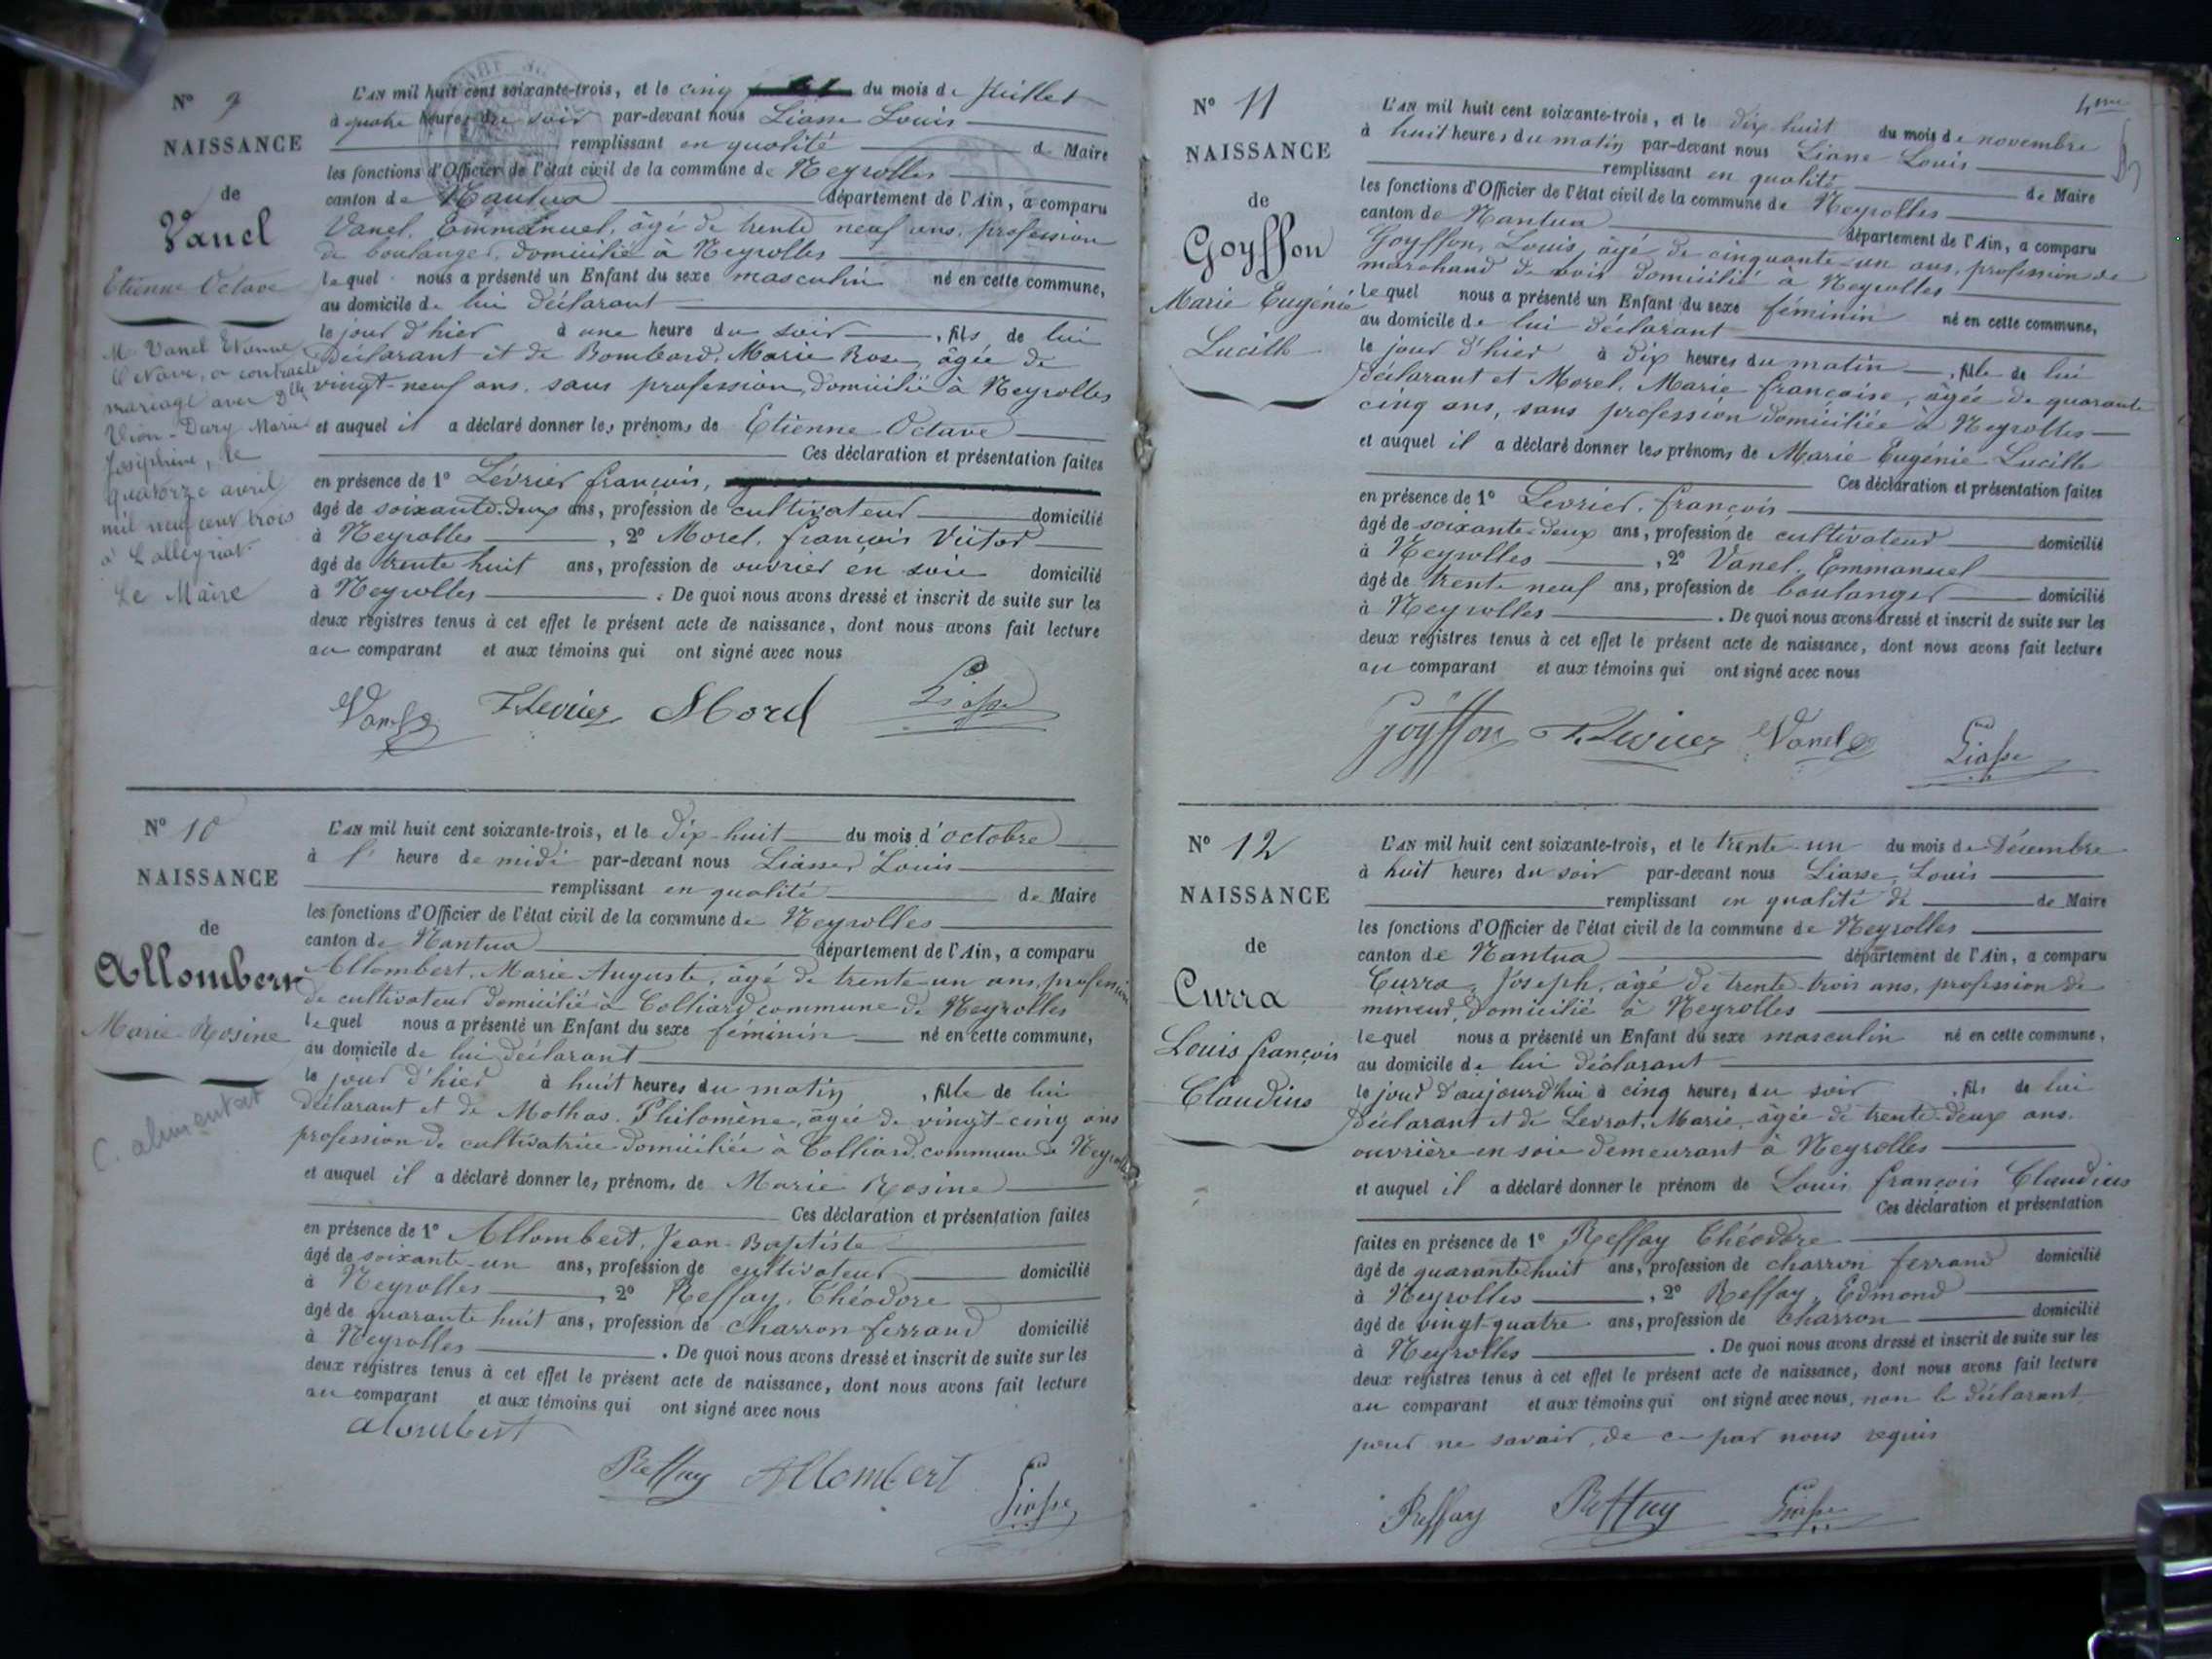 N° 9
NAISSANCE
de
Vanel
Etienne Octave
M. Vanel Etienne
Octave, a contracté
mariage avec Dlle
Vion-Dury Marie
Joséphine, le
quatorze avril
mil neuf cent trois
à Lalleyriat
Le Maire
L'AN mil huit cent soixante-trois, et le cinq du mois de Juillet
à quatre heures du soir par-devant nous Liasse Louis
remplissant en qualité de Maire
les fonctions d'Officier de l'état civil de la commune de Neyrolles
canton de Nantua département de l'Ain, a comparu
Vanel, Emmanuel, âgé de trente neuf ans, profession
de boulanger, domicilié à Neyrolles
lequel nous a présenté un Enfant du sexe masculin né en cette commune,
au domicile de lui déclarant
le jour d'hier à une heure du soir, fils de lui
déclarant et de Bombard, Marie Rose, âgée de
vingt-neuf ans, sans profession, domicilié à Neyrolles
et auquel il a déclaré donner les prénoms de Etienne Octave
Ces déclaration et présentation faites
en présence de 1° Lévrier françois,
âgé de soixante-deux ans, profession de cultivateur domicilié
à Neyrolles, 2° Morel, françois Victor
âgé de trente huit ans, profession de ouvrier en soie domicilié
à Neyrolles. De quoi nous avons dressé et inscrit de suite sur les
deux registres tenus à cet effet le présent acte de naissance, dont nous avons fait lecture
au comparant et aux témoins qui ont signé avec nous
Vanel F. Levrier Morel Liasse
N° 10
NAISSANCE
de
Allombert
Marie Rosine
C. alimentat
L'AN mil huit cent soixante-trois, et le dix-huit du mois d'octobre
à l' heure de midi par-devant nous Liasse, Louis
remplissant en qualité de Maire
les fonctions d'Officier de l'état civil de la commune de Neyrolles
canton de Nantua département de l'Ain, a comparu
Allombert, Marie Auguste, âgé de trente-un ans, profession
de cultivateur domicilié à Colliard commune de Neyrolles
lequel nous a présenté un Enfant du sexe féminin né en cette commune,
au domicile de lui déclarant
le jour d'hier à huit heures du matin, fille de lui
déclarant et de Mathas, Philomène, âgée de vingt-cinq ans
profession de cultivatrice domiciliée à Colliard, commune de Neyrolles
et auquel il a déclaré donner les prénoms de Marie Rosine
Ces déclaration et présentation faites
en présence de 1° Allombert, Jean-Baptiste
âgé de soixante-un ans, profession de cultivateur domicilié
à Neyrolles, 2° Reffay, Théodore
âgé de quarante huit ans, profession de charron ferrand domicilié
à Neyrolles. De quoi nous avons dressé et inscrit de suite sur les
deux registres tenus à cet effet le présent acte de naissance, dont nous avons fait lecture
au comparant et aux témoins qui ont signé avec nous
alombert
Reffay Allombert Liasse
4me
N° 11
NAISSANCE
de
Goyffon
Marie Eugénie
Lucille
L'AN mil huit cent soixante-trois, et le dix huit du mois de novembre
à huit heures du matin par-devant nous Liasse Louis
remplissant en qualité de Maire
les fonctions d'Officier de l'état civil de la commune de Neyrolles
canton de Nantua département de l'Ain, a comparu
Goyffon, Louis, âgé de cinquante-un ans, profession de
marchand de bois domicilié à Neyrolles
lequel nous a présenté un Enfant du sexe féminin né en cette commune,
au domicile de lui déclarant
le jour d'hier à dix heures du matin, fille de lui
déclarant et Morel, Marie françoise, âgée de quarante
cinq ans, sans profession domiciliée à Neyrolles
et auquel il a déclaré donner les prénoms de Marie Eugénie Lucille
Ces déclaration et présentation faites
en présence de 1° Levrier, françois
âgé de soixante-deux ans, profession de cultivateur domicilié
à Neyrolles, 2° Vanel, Emmanuel
âgé de trente neuf ans, profession de boulanger domicilié
à Neyrolles. De quoi nous avons dressé et inscrit de suite sur les
deux registres tenus à cet effet le présent acte de naissance, dont nous avons fait lecture
au comparant et aux témoins qui ont signé avec nous
Goyffon F. Levrier Vanel Liasse
N° 12
NAISSANCE
de
Curra
Louis françois
Claudius
L'AN mil huit cent soixante-trois, et le trente-un du mois de Décembre
à huit heures du soir par-devant nous Liasse, Louis
remplissant en qualité de de Maire
les fonctions d'Officier de l'état civil de la commune de Neyrolles
canton de Nantua département de l'Ain, a comparu
Curra, Joseph, âgé de trente-trois ans, profession de
mineur, domicilié à Neyrolles
lequel nous a présenté un Enfant du sexe masculin né en cette commune,
au domicile de lui déclarant
le jour d'aujourd'hui à cinq heures du soir, fils de lui
déclarant et de Levrat, Marie, âgée de trente-deux ans.
ouvrière en soie demeurant à Neyrolles
et auquel il a déclaré donner le prénom de Louis françois Claudius
Ces déclaration et présentation
faites en présence de 1° Reffay Théodore
âgé de quarante-huit ans, profession de charron ferrand domicilié
à Neyrolles, 2° Reffay, Edmond
âgé de vingt-quatre ans, profession de charron domicilié
à Neyrolles. De quoi nous avons dressé et inscrit de suite sur les
deux registres tenus à cet effet le présent acte de naissance, dont nous avons fait lecture
au comparant et aux témoins qui ont signé avec nous, non le déclarant
pour ne savoir, de ce par nous requis
Reffay Reffay Liasse